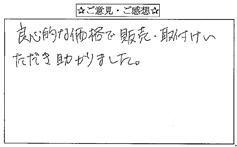 ☆ご意見・ご感想☆
良心的な価格で販売・取付けい
ただき助かりました。